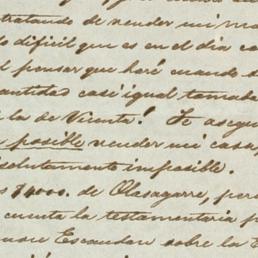 tratando de vender mi
lo dificil que es en el dia
pensar que haré cuando
cantidad casi igual
i la de Vicente! Te
posible vender mi casa,
absolutamente imposible.
de Olasagarre, per
cuenta la testamentaria
Escandon sobre la